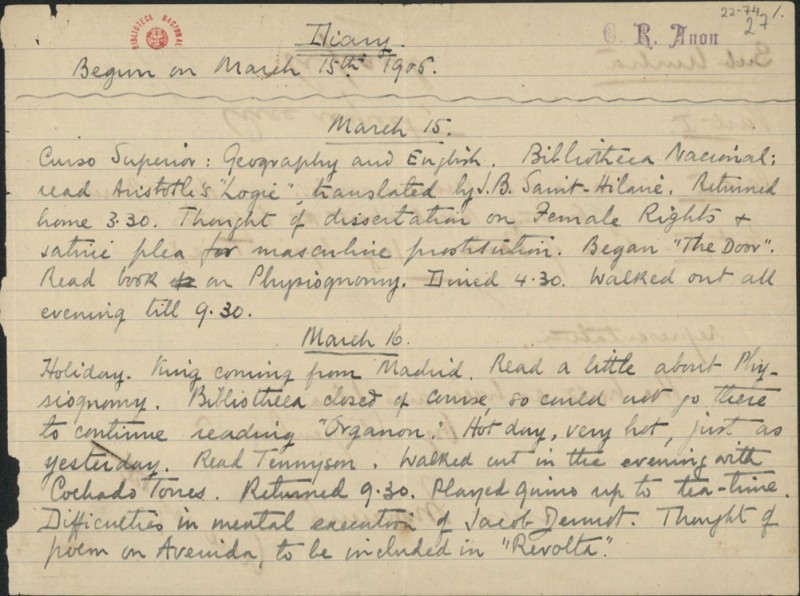 22-74/1.
27
BIBLIOTECA NACIONAL
C. R. Anon
Diary.
Begun on March 15th 1906.
March 15.
Curso Superior: Geography and English. Bibliotheca Nacional:
read Aristotle's "Logic", translated by J.B. Saint-Hilaire. Returned
home 3.30. Thought of dissertation on Female Rights &
satiric plea for masculine prostitution. Began "The Door".
Read book on Physiognomy. Dined 4.30. Walked out all
evening till 9.30.
March 16.
Holiday. King coming from Madrid. Read a little about Phy-
siognomy. Bibliotheca closed of course, so could not go there
to continue reading "Organon". Hot day, very hot, just as
yesterday. Read Tennyson. Walked out in the evening with
Cochado Torres. Returned 9.30. Played quino up to tea-time.
Difficulties in mental execution of Jacob Dermot. Thought of
poem on Avenida, to be included in "Revolta".